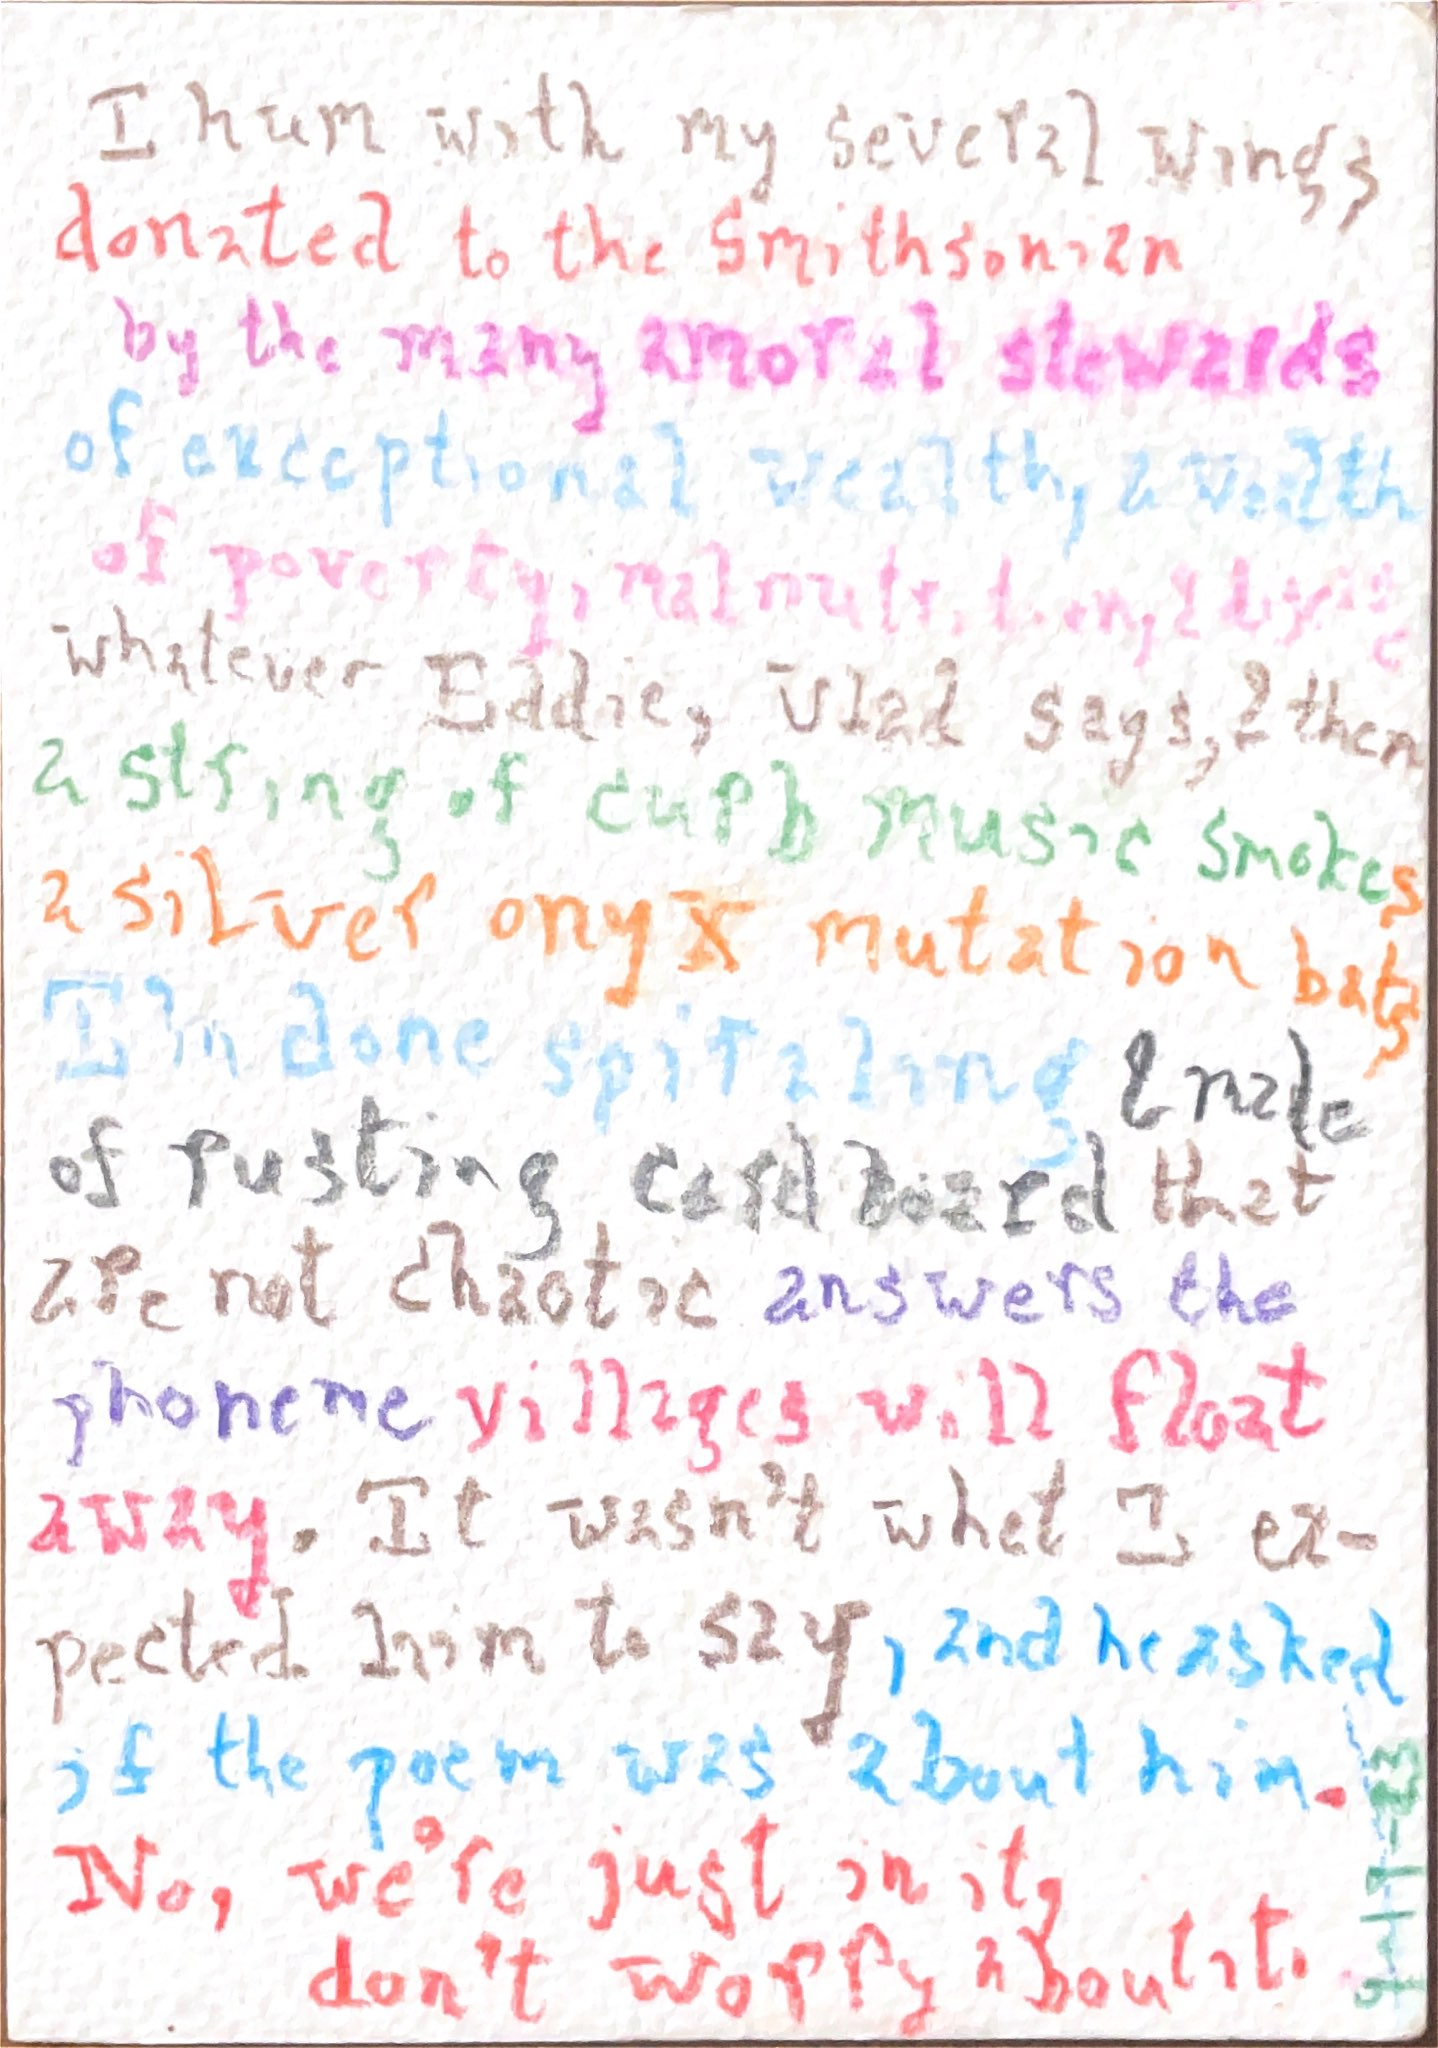 I hum with my several wings
donated to the Smithsonian
by the many amoral stewards
of exceptional wealth, a width
of poverty, malnutrition, & dying
whatever Eddie, Vlad says, & then
a string of curb music smokes
a silver onyx mutation bats
I'm done spiraling & male
of rusting cardboard that
are not chaotic answers the
phoneme villages will float
away. It wasn't what I ex-
pected him to say, and he asked
if the poem was about him.
No, we're just in it,
don't worry about it.